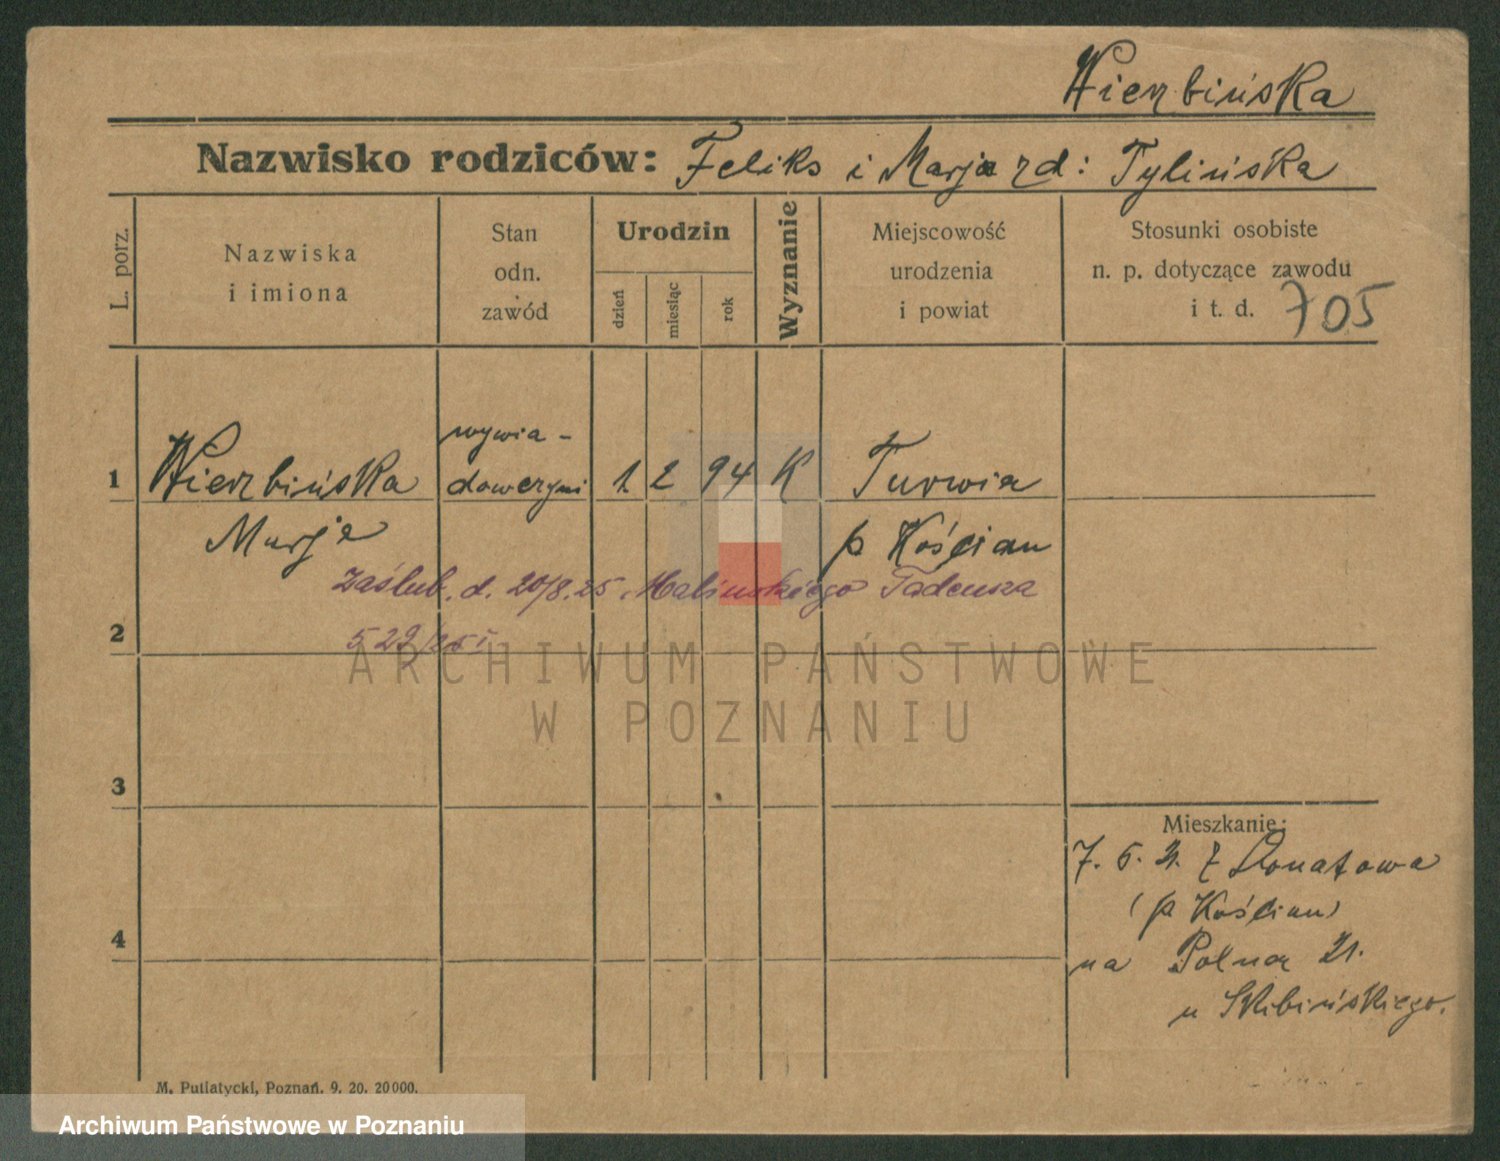 Wierzbińska
Nazwisko rodziców: Feliks i Marja zd: Tylińska
L. porz.
Nazwiska
i imiona
Stan
odn.
zawód
Urodzin
dzień
miesiąc
rok
Wyznanie
Miejscowość
urodzenia
i powiat
Stosunki osobiste
n. p. dotyczące zawodu
i t. d.
705
1 Wierzbińska wywia- 1. 2 94 K Turwia
Marja p Kościan
Zaślub. d. 20/8.25. Malinskiego Tadeusza
2 529/25
ARCHIWUM PAŃSTWOWE
W POZNANIU
3
Mieszkanie:
7. 5. 21. z Donatowa
(p Kościan)
4
na Polna 21.
u Skibińskiego.
M. Putiatycki, Poznań. 9. 20. 20000.
Archiwum Państwowe w Poznaniu